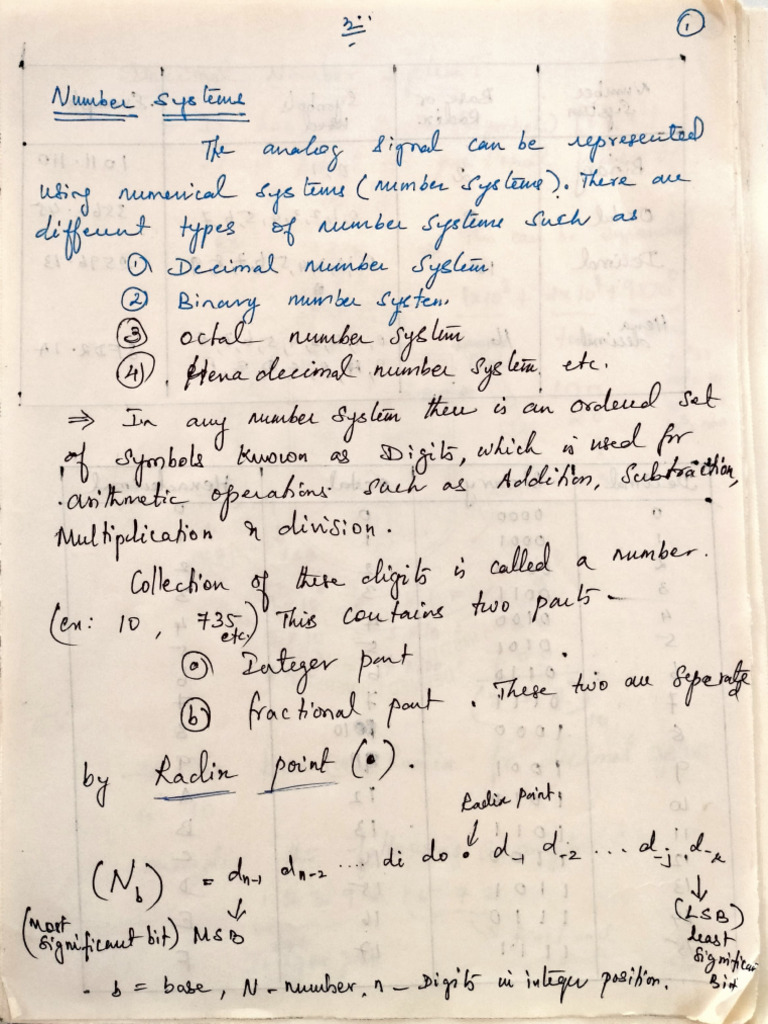 ①
Number Systems
The analog signal can be represented
using numerical systems (number systems). There are
different types of number systems such as
① Decimal number system
② Binary number system.
③ octal number system
④ Hexa decimal number system etc.
⇒ In any number system there is an ordered set
of symbols known as Digits, which is used for
arithmetic operations such as Addition, Subtraction,
Multiplication & division.
Collection of these digits is called a number.
(ex: 10, 735 etc.) This contains two parts -
ⓐ Integer part
ⓑ fractional part. These two are Separated
by Radix point (•).
Radix point:
(N_b) = d_n-1 d_n-2 .... di do . d_-1 d_-2 ... d_-j d_-k
(most significant bit) MSB
(LSB)
least
significant
Bit
b = base, N - number, n - Digits in integer position.